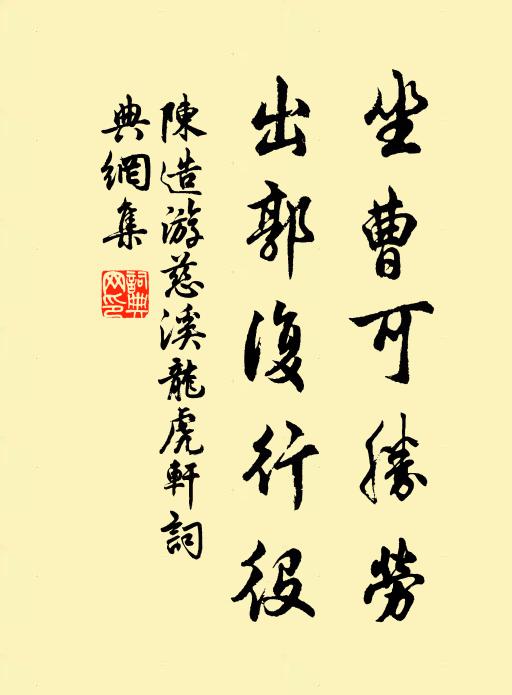 坐曹可勝勞
出郭復行役
陳造游慈溪龍虎軒詞
典網集
詞典
网印